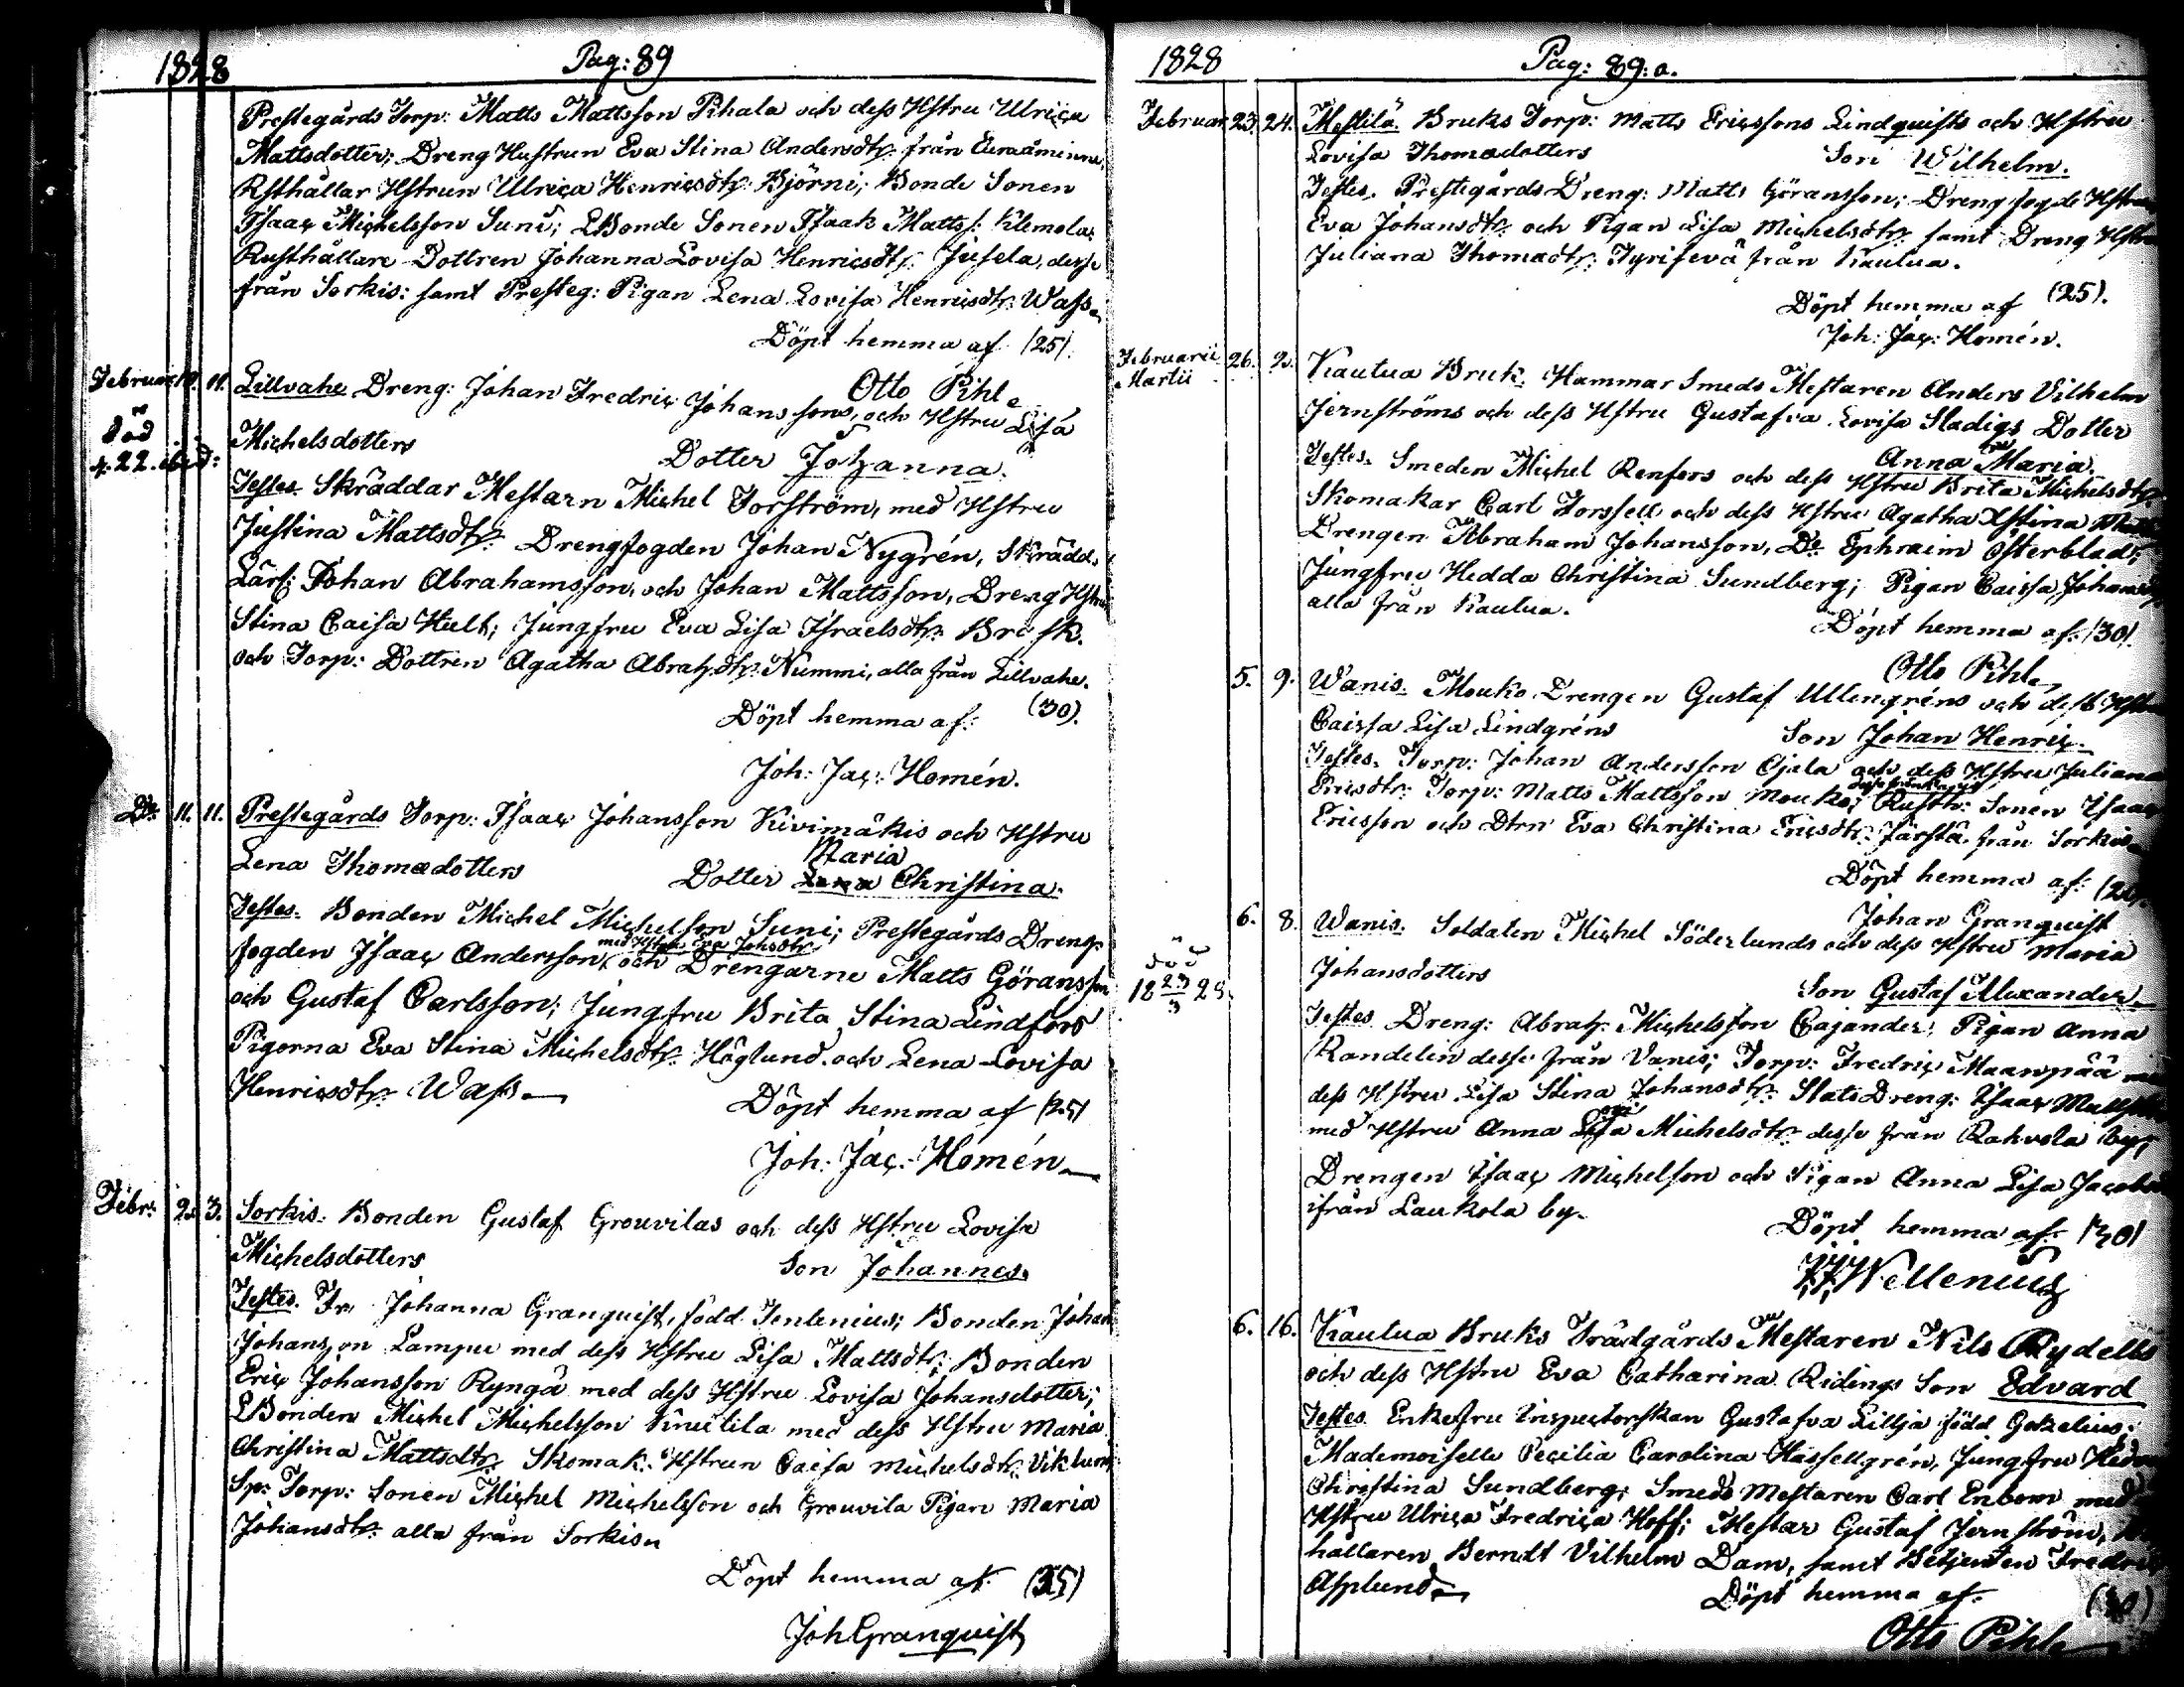 1828 Pag: 89
Prestegårds Torp: Matts Mattsson Pihala och dess Hstru Ulrica
Mattsdotter; Dreng Hustrun Eva Stina Andersdtr. från Euraåminne,
Rsthållar Hstrun Ulrica Henricsdtr. Björni; Bonde Sonen
Isaac Michelsson Suni; LBonde Sonen Isaak Matts: Klemola,
Rusthållare Dottren Johanna Lovisa Henricsdtr. Jusela, desse
från Sorkis: samt Presteg: Pigan Lena Lovisa Henricsdtr. Wass.
Döpt hemma af (25).
Otto Pihl
Februar 10. 11. Lillvahe Dreng: Johan Fredric Johanssons, och Hstru Lisa
död
d. 22. ibid:
Michelsdotters Dotter Johanna.
Testes. Skräddar Mestarn Michel Torström, med Hstru
Justina Mattsdtr. Drengfogden Johan Nygrén, Skrädd.
Lärl: Johan Abrahamsson, och Johan Mattsson, Dreng Hstru
Stina Caisa Hult; Jungfru Eva Lisa Israelsdtr. Brusk.
och Torp: Dottren Agatha Abrah.dtr. Nummi, alla från Lillvahe.
Döpt hemma af: (30).
Joh: Jac: Homén.
Do 11. 11. Prestegårds Torp: Isaac Johansson Kivimäkis och Hstru
Maria
Lena Thomædotters Dotter Lena Christina.
Testes. Bonden Michel Michelsson Suni; Prestegårds Dreng-
med Hstru Eva Johsdtr.
fogden Isaac Andersson, och Drengarne Matts Göransson
och Gustaf Carlsson; Jungfru Brita Stina Lindfors
Pigorna Eva Stina Michelsdtr. Höglund. och Lena Lovisa
Henricsdtr. Wass.
Döpt hemma af (25)
Joh: Jac: Homén
Febr: 2. 3. Sorkis. Bonden Gustaf Grouvilas och dess Hstru Lovisa
Michelsdotters Son Johannes.
Testes. Fr. Johanna Granquist, född Tenlenius; Bonden Johan
Johansson Lampu med dess Hstru Lisa Mattsdtr; Bonden
Eric Johansson Ryngä med dess Hstru Lovisa Johansdotter;
LBonden Michel Michelsson Knuutila med dess Hstru Maria
Christina Mattsdtr. Skomak: Hstrun Caisa Michelsdtr. Viklund
Sp: Torp: Sonen Michel Michelsson och Grouvila Pigan Maria
Johansdtr. alla från Sorkis.
Döpt hemma af. (35)
Joh Granquist
1828 Pag: 89: a.
Februar. 23. 24. Mestilä. Bruks Torp: Matts Ericssons Lindquists och Hstru
Lovisa Thomædotters Son Wilhelm.
Testes. Prestegårds Dreng: Matts Göransson; Drengfogde Hstru
Eva Johansdtr. och Pigan Lisa Michelsdtr. samt Dreng Hstru
Juliana Thomædtr. Tyrisevä från Kautua.
Döpt hemma af (25).
Joh: Jac: Homén.
Februarii 26. 2. Kautua Bruk. Hammar Smeds Mestaren Anders Vilhelm
Martii
Jernströms och dess Hstru Gustafva Lovisa Stadigs Dotter
Anna Maria.
Testes. Smeden Michel Renfors och dess Hstru Brita Michelsdtr.
Skomakar Carl Forssell och dess Hstru Agatha Xstina
Drengen Abraham Johansson, Do Ephraim Österblad;
Jungfru Hedda Christina Sundberg; Pigan Caissa Johansdtr
alla från Kautua.
Döpt hemma af. (30).
Otto Pihl
5. 9. Wanis. Mouko Drengen Gustaf Ullengréns och dess Hstru
Caissa Lisa Lindgréns Son Johan Henric.
Testes. Torp: Johan Andersson Ojala och dess Hstru Juliana
Ericsdtr: Torp: Matts Mattsson Mouko; Rusth: Sonen Isaac
Ericsson och Dtrn Eva Christina Ericsdtr. Järstä från Sorkis.
Döpt hemma af:
Johan Granquist
6. 8. Wanis. Soldaten Michel Söderlunds och dess Hstru Maria
död
18 23/3 28.
Johansdotters Son Gustaf Alexander.
Testes. Dreng: Abrah: Michelsson Cajander, Pigan Anna
Randelin desse från Vanis; Torp: Fredric Maanpää med
dess Hstru Lisa Stina Johansdtr. Stats Dreng: Isaac
med Hstru Anna Lisa Michelsdtr. desse från Rahvola by;
Drengen Isaac Michelson och Pigan Anna Lisa Jacobs
ifrån Laukola by.
Döpt hemma af: (30)
Wellenius
6. 16. Kautua Bruks Trädgårds Mestaren Nils Rydells
och dess Hstru Eva Catharina Ridings Son Edvard
Testes. Enkefru Inspectorskan Gustafva Lillja född Gezelius;
Mademoiselle Cecilia Carolina Hassellgrén, Jungfru Hedda
Christina Sundberg; Smeds Mestaren Carl Enbom med
Hstru Ulrica Fredrica Hoff; Mestar Gustaf Jernström,
hallaren Berndt Vilhelm Dam, samt Betjenten Fredric
Asplund.
Döpt hemma af. (30)
Otto Pihl